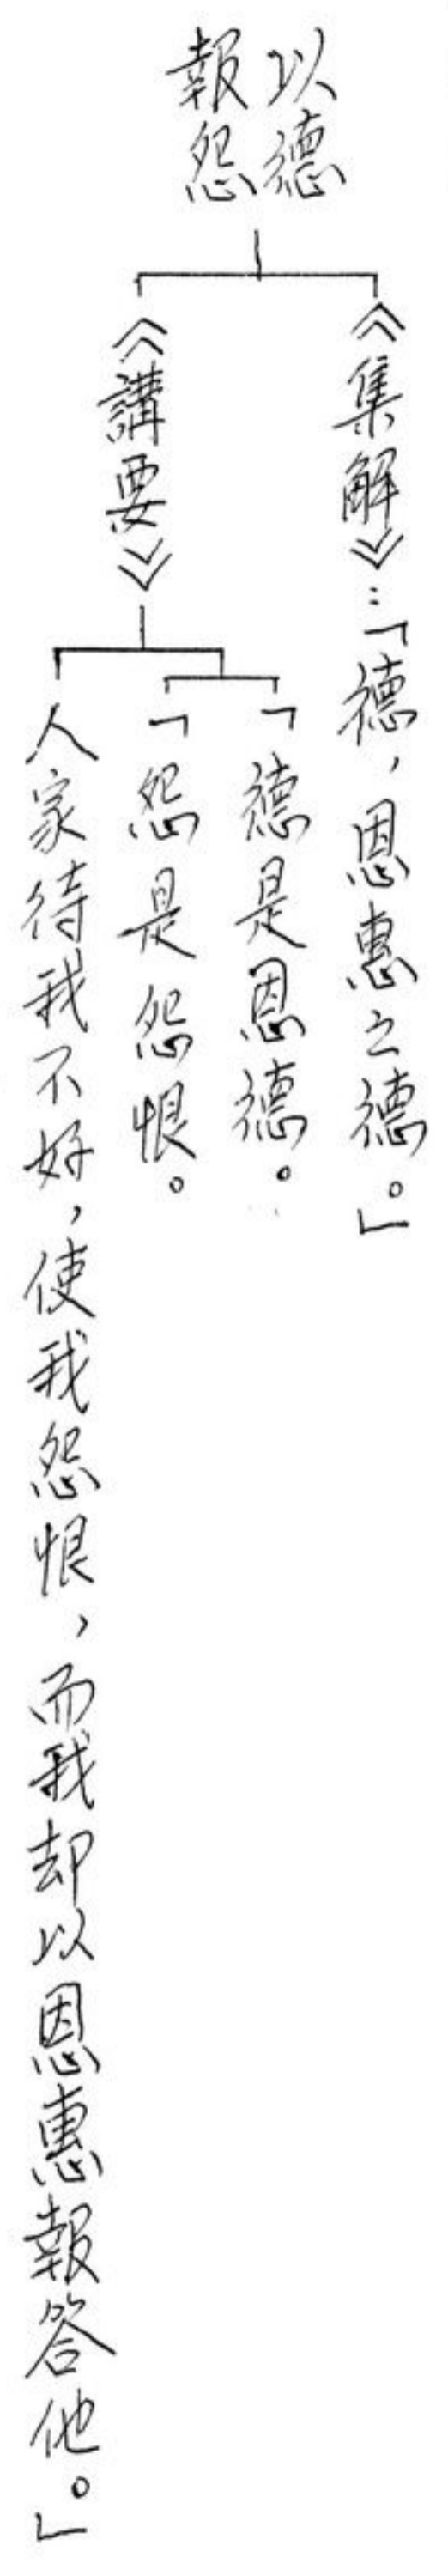 以德
報怨
《集解》：「德，恩惠之德。」
《講要》
「德是恩德。
「怨是怨恨。
人家待我不好，使我怨恨，而我却以恩惠報答他。」